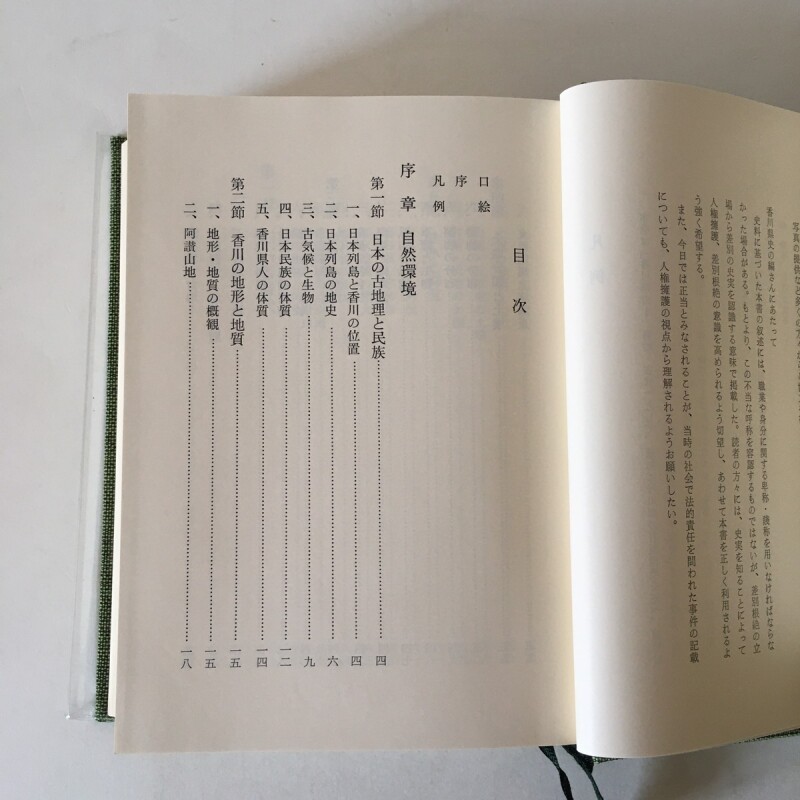 香川県史の編さんにあたって
史料に基づいた本書の叙述には、職業や身分に関する卑称・賤称を用いなければならな
かった場合がある。もとより、この不当な呼称を容認するものではないが、差別根絶の立
場から差別の史実を認識する意味で掲載した。読者の方々には、史実を知ることによって
人権擁護、差別根絶の意識を高められるよう切望し、あわせて本書を正しく利用されるよ
う強く希望する。
また、今日では正当とみなされることが、当時の社会で法的責任を問われた事件の記載
についても、人権擁護の視点から理解されるようお願いしたい。
目次
口絵
序
凡例
序章 自然環境
第一節 日本の古地理と民族……四
一、日本列島と香川の位置……四
二、日本列島の地史……六
三、古気候と生物……九
四、日本民族の体質……一二
五、香川県人の体質……一四
第二節 香川の地形と地質……一五
一、地形・地質の概観……一五
二、阿讃山地……一八